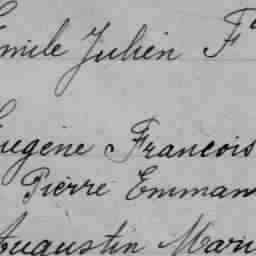 Emile Julien F
Eugène Francois
Pierre Emman
Augustin Mari